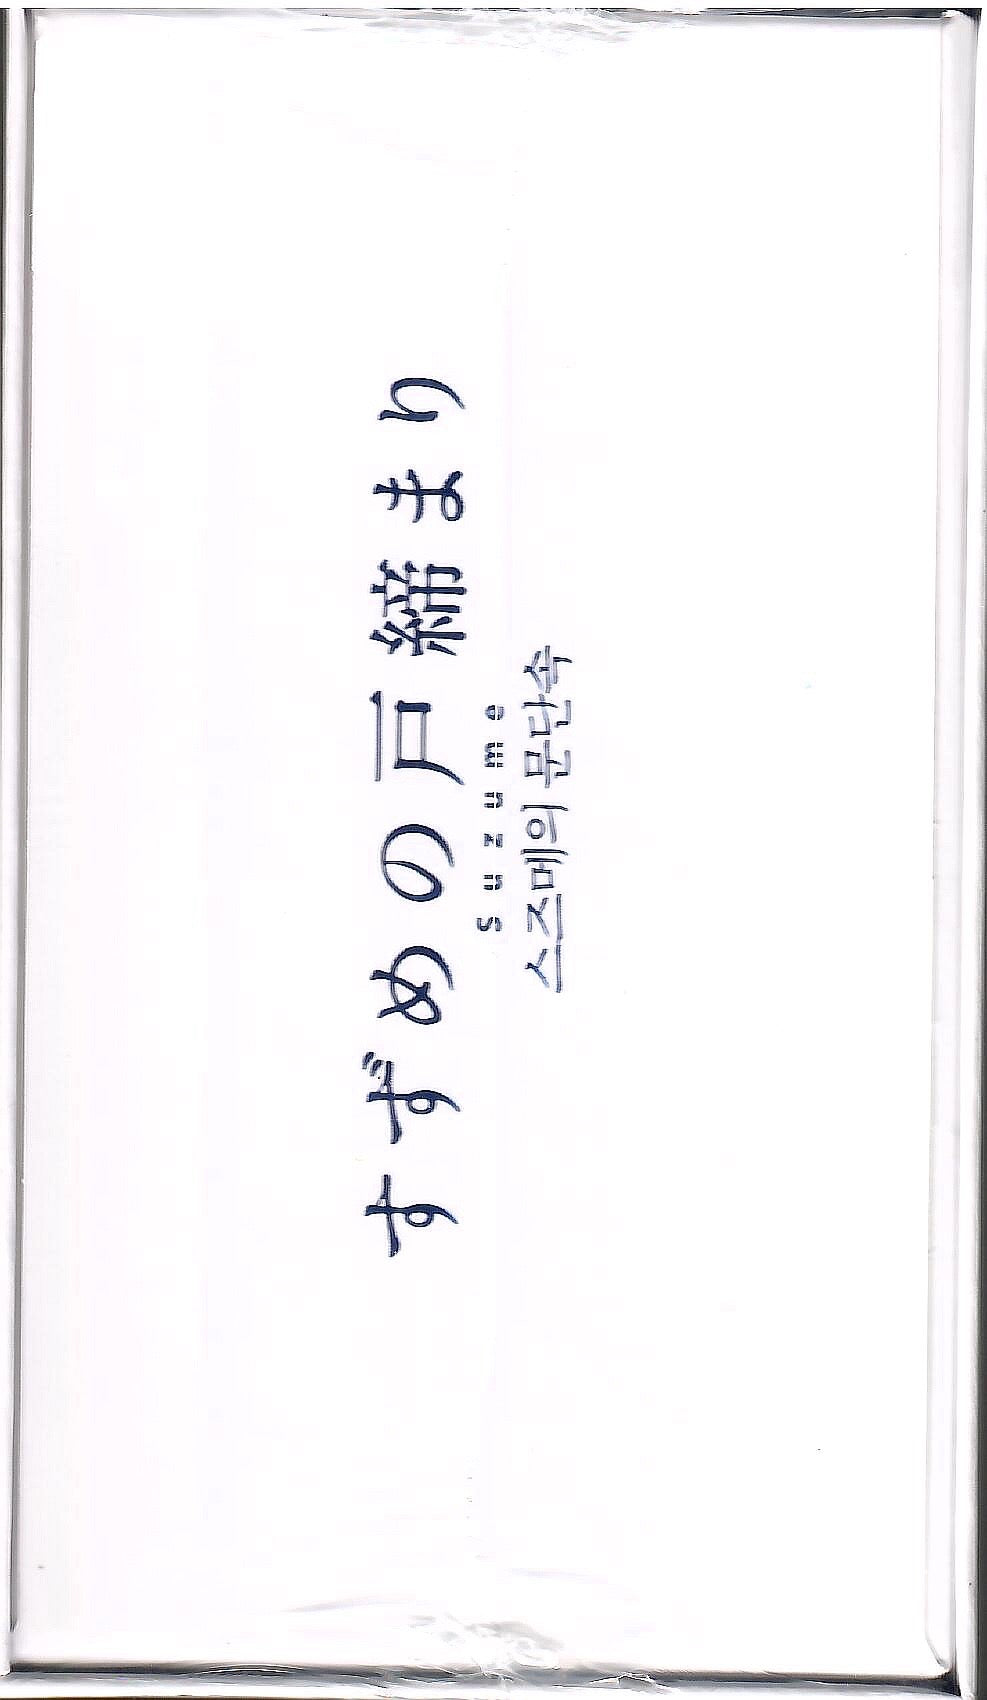 すずめの戸締まり
Suzume
스즈메의 문단속